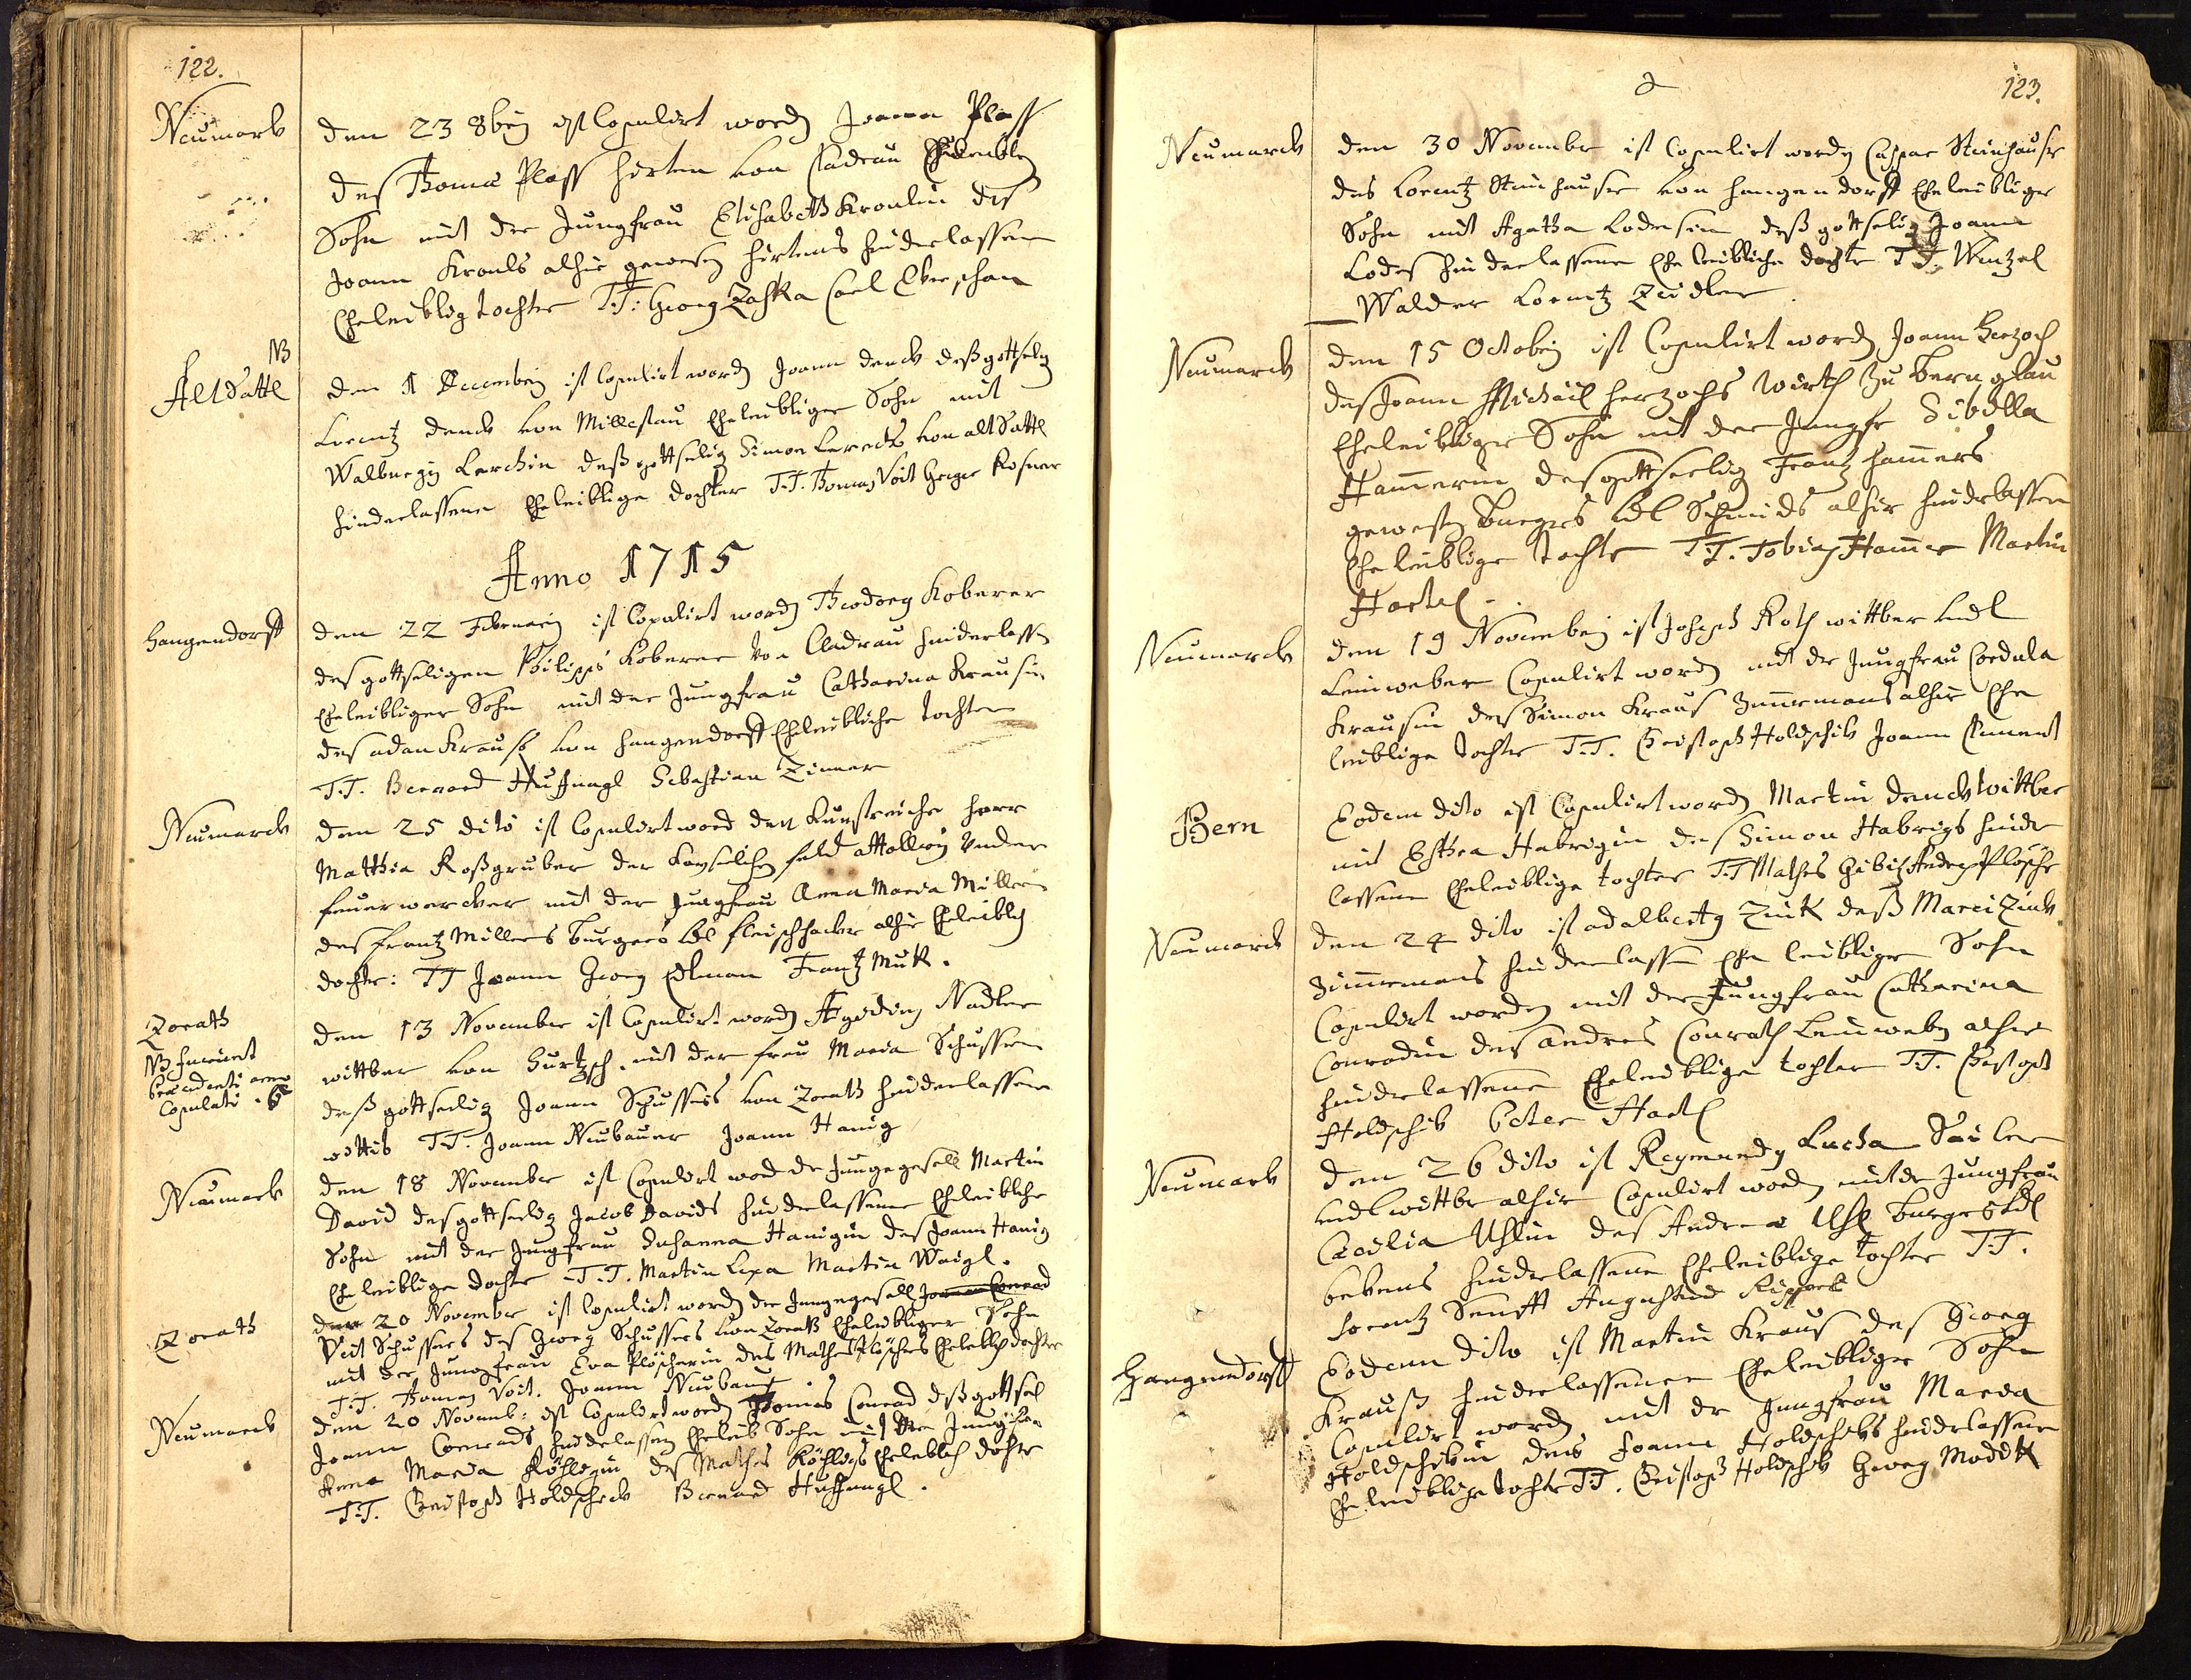 122.
Neumark
den 23 8bris ist Copulirt worden Joann Plass
des Thomæ Plass hirten von Cladrau Eheleiblicher
Sohn mit der Jungfrau Elisabeth Kroulin des
Joann Krouls alhie gewesen hirtens hinderlassene
Eheleiblige tochter T.T: Georg Zaska Carl
NB
Altsattl
den 1 Decembris ist Copulirt worden Joann denck deß gottselig
Lorentz denck von Millestau Eheleibliger Sohn mit
Walburgis Lerchin deß gottselig Simon Lerchs von alt Sattl
hinderlassene Eheleiblige dochter T.T. Thomas Voit Gerger Rosner
Anno 1715
Hangendorff
den 22 Februarij ist Copulirt worden Theodorg Koberer
des gottseligen Philipps Koberer von Cladrau hinderlassen
Eheleibliger Sohn mit der Jungfrau Catharina Krausin
des adan Krauß von hangendorff Eheleibliche tochter
T.T. Bernard Huffnagl Sebastian Zinner
Neumarck
den 25 dito ist Copulirt word der kunstreiche herr
Matthia Roßgruber der kayselichen feld attollerij Under
feuerwercker mit der Jungfrau Anna Maria Millerin
des frantz Millers burgers vndt fleischhacker alhie Eheleibliche
dochter: TT Joann Georg Edlman Frantz Muk.
Zorath
NB
Copulati
den 13 November ist Copulirt worden Ægidius Nadler
wittber von Hurtzsch mit der frau Maria Schusserin
deß gottselig Joann Schussers von Zorath hinderlassene
wittib T.T. Joann Neubauer Joann Hanig
Neumark
den 18 November ist Copulirt word der Jungegesell Martin
David des gottselig Jacob Davids hinderlassener Eheleiblicher
Sohn mit der Jungfrau Susanna Hanigin des Joann Hanig
Eheleiblige dochter T.T. Martin Lexa Martin Weigl.
Zorath
den 20 November ist Copulirt worden der Jungegesell Joann Conrad
Veit Schussers des Georg Schussers von Zorath Eheleibliger Sohn
mit der Jungfrau Eva Plöscherin des Mathes Plöschers Eheleiblich dochter
T.T. Thomas Voit. Joann Neubauer
Neumarck
den 20 Novemb: ist Copulirt worden Thomas Conrad deß gottsel
Joann Conrads hinderlassen Eheleib Sohn mit der Jungfrau
Anna Maria Röhligin des Mathes Röhligs Eheleiblich dochter
T.T. Christoph Holdscheck Bernard Huffnagl.
123.
Neumarck
den 30 November ist Copulirt worden Caspar Steinhauser
des Lorentz Steinhauser von hangendorff Eheleibliger
Sohn mit Agatha Lodesin deß gottselig Joann
Lodes hinderlassene Eheleibliche dochter T.T. Wentzel
Walder Lorentz Zeidler
Neumarck
den 15 Octobris ist Copulirt worden Joann Herzoch
des Joann Michäil herzochs Wirth zu bernglau
Eheleibliger Sohn mit der Jungfr Sibilla
Hammerin des gottseelig Frantz hamers
gewesten burgers vndt Schmids alhie hinderlassen
Eheleiblige tochter T.T. Tobias Hamer Martin
Hartel
Neumarck
den 19 Novembris ist Joseph Roth wittber vndt
Leinweber Copulirt worden mit der Jungfrau Cordula
Krausin des Simon Kraus Zimermans alhie Ehe
leiblige tochter T.T. Christoph Holdschek Joann Clement
Bern
Eodem dito ist Copulirt worden Martin denck wittber
mit Esthra Habrigin des Simon Habrigs hinder
lassene Eheleiblige tochter T.T Mathes Gibitz Andres Plöscher
Neumarck
den 24 dito ist adalbertg Zink deß Marci Zinck
Zimmermans hinderlassen Eheleibliger Sohn
Copulirt worden mit der Jungfrau Catharina
Conradin des andres Conrath Leinweber alhie
hinderlassene Eheleiblige tochter T.T. Christoph
Holdschek Peter Hartl
Neumark
den 26 dito ist Reymundg Lucha Sailer
vndt wittber alhie Copulirt worden mit der Jungfrau
Cæcilia Uhlin des Andreæ Uhl burgers vndt
bekens hinderlassene Eheleiblige tochter T.T.
Lorentz Senfft Augustin
Hangendorff
Eodem dito ist Martin Kraus des Georg
Krauß hinderlassener Eheleibliger Sohn
Copulirt worden mit der Jungfrau Maria
Holdschekin deß Joann Holdscheks hinderlassene
Eheleiblige tochter T.T. Christoph Holdschek Georg Modik